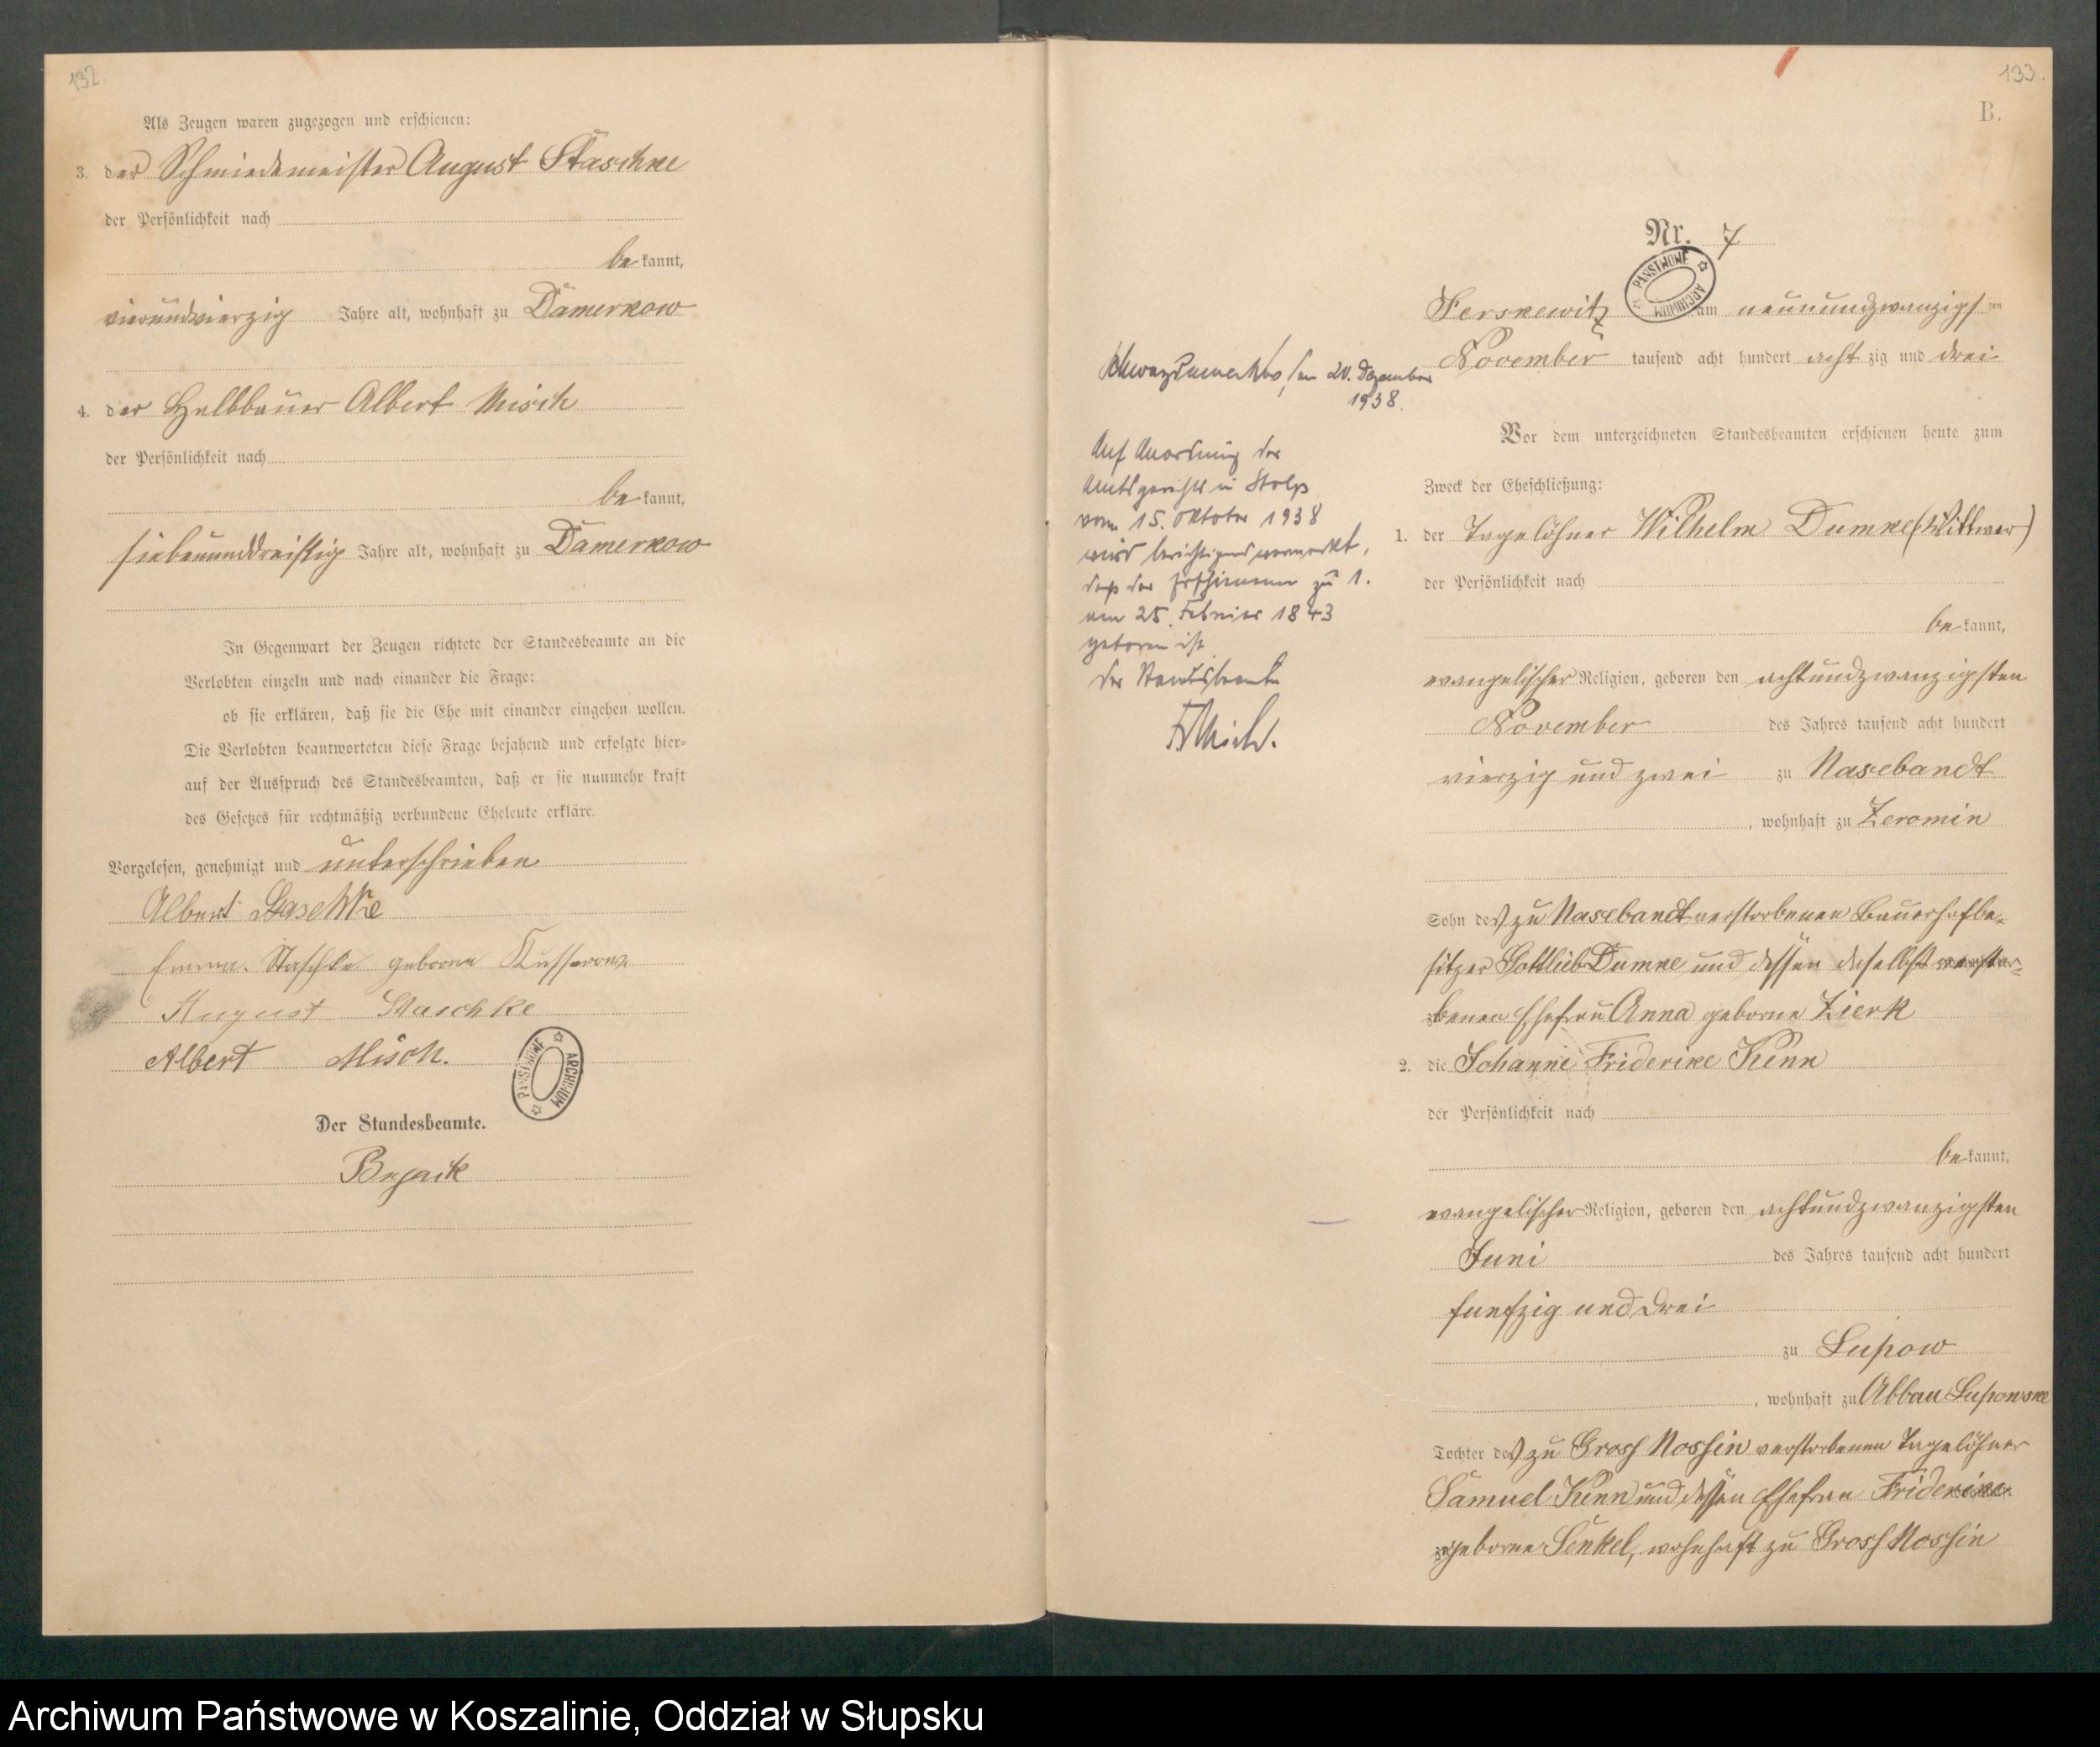 132.
Als Zeugen waren zugezogen und erschienen:
3. der Schmiedemeister August Staschke
der Persönlichkeit nach
be kannt,
vierundvierzig Jahre alt, wohnhaft zu Damerkow
4. der Halbbauer Albert Misch
der Persönlichkeit nach
be kannt,
siebenunddreißig Jahre alt, wohnhaft zu Damerkow
In Gegenwart der Zeugen richtete der Standesbeamte an die
Verlobten einzeln und nach einander die Frage:
ob sie erklären, daß sie die Ehe mit einander eingehen wollen.
Die Verlobten beantworteten diese Frage bejahend und erfolgte hier-
auf der Ausspruch des Standesbeamten, daß er sie nunmehr kraft
des Gesetzes für rechtmäßig verbundene Eheleute erkläre.
Vorgelesen, genehmigt und unterschrieben
Albert Staschke
Emma Staschke geborne Kusserow
August Staschke
Albert Misch.
PAŃSTWOWE ARCHIWUM
Der Standesbeamte.
133.
B.
Nr. 7
PAŃSTWOWE ARCHIWUM
Ferskewitz am neunundzwanzigsten
November tausend acht hundert acht zig und drei
den 20. Dezember
1938.
Auf Anordnung des
Amtsgerichts in Stolp
vom 15. Oktober 1938
wird berichtigend vermerkt,
daß der Erschienene zu 1.
am 25. Februar 1843
geboren ist.
Der Standesbeamte
Misch.
Vor dem unterzeichneten Standesbeamten erschienen heute zum
Zweck der Eheschließung:
1. der Tagelöhner Wilhelm Dumke (Wittwer)
der Persönlichkeit nach
be kannt,
evangelischer Religion, geboren den achtundzwanzigsten
November des Jahres tausend acht hundert
vierzig und zwei zu Nasebandt
, wohnhaft zu Zeromin
Sohn des zu Nasebandt verstorbenen Bauerhofbe-
sitzer Gottlieb Dumke und dessen daselbst verstor-
benen Ehefrau Anna geborne Zierk
2. die Johanne Friderike Kenn
der Persönlichkeit nach
be kannt,
evangelischer Religion, geboren den achtundzwanzigsten
Juni des Jahres tausend acht hundert
funfzig und drei
zu Lupow
, wohnhaft zu Abbau Lupowske
Tochter des zu Gross Nossin verstorbenen Tagelöhner
Samuel Kenn und dessen Ehefrau Friderike
geborne Senkel, wohnhaft zu Gross Nossin
Archiwum Państwowe w Koszalinie, Oddział w Słupsku